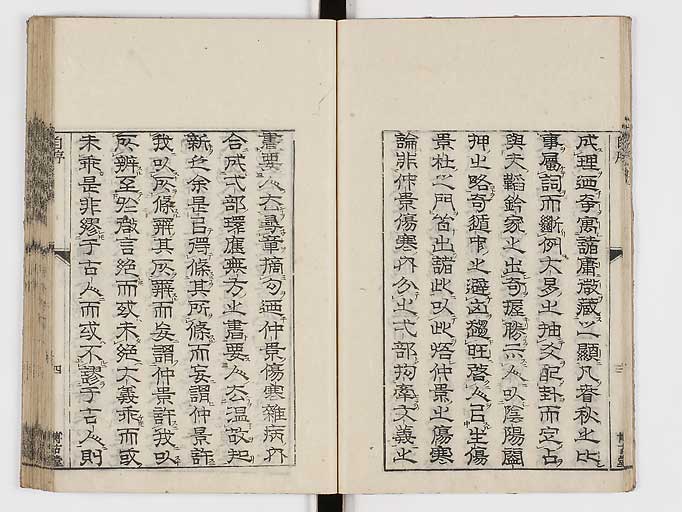 成理迺寓諸庸微藏之顯凡春秋之比
事屬詞而斷例大易之抽爻配卦而定占
與夫韜鈐家之出奇握勝示人以陰陽闔
押之略奇遁中之避凶趨旺啓人以生傷
景杜之門皆出諸此以此悟仲景之傷寒
論非仲景傷寒內分之式部拘牽文義之
書要人去尋章摘句迺仲景傷寒雜病內
合成式部環應無方之書要人去溫故知
新之余是以得條其所條而妄謂仲景許
我以所條辨其所辨而妄謂仲景許我以
所辨至於微言絕而或未絕大義乖而或
未乖是非謬于古人而或不謬于古人則
自序
四
博古堂